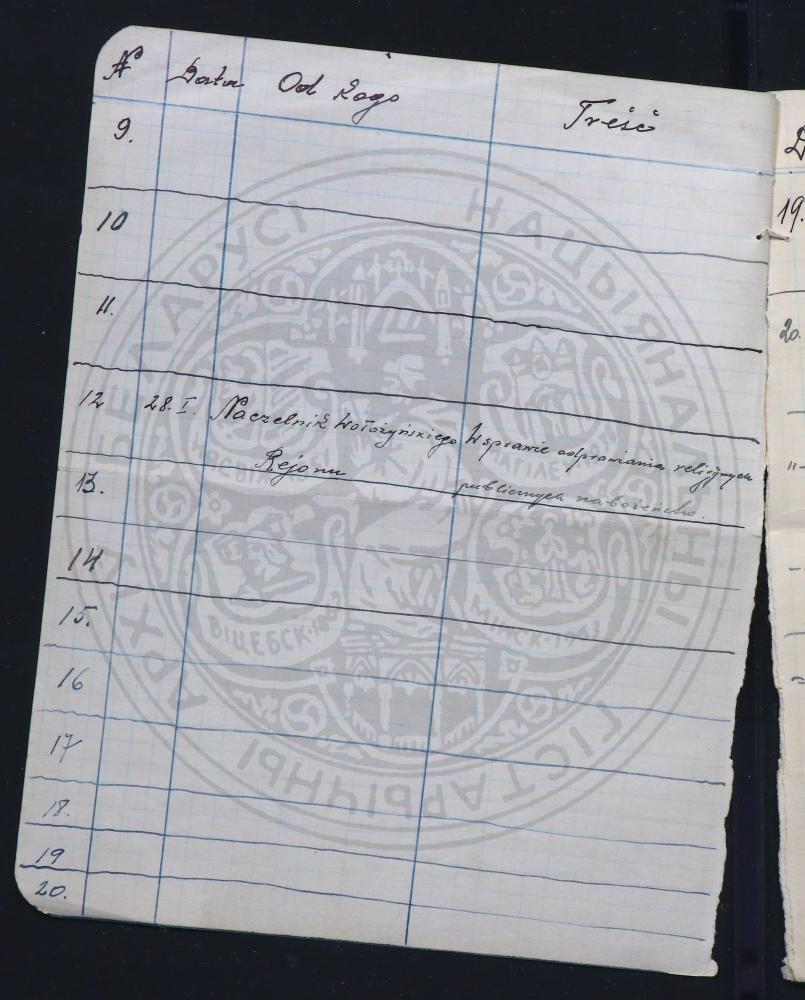 № Data Od kogo Treść
9.
10
11.
12 28. I. Naczelnik Wołożyńskiego W sprawie odprawiania religijnych
Rejonu publicznych nabożeństw.
13.
14
15.
16
17
18.
19
20.
19.
20.
НАЦЫЯНАЛЬНЫ ГІСТАРЫЧНЫ АРХІЎ БЕЛАРУСІ
ВІЦЕБСК·
МІНСК·